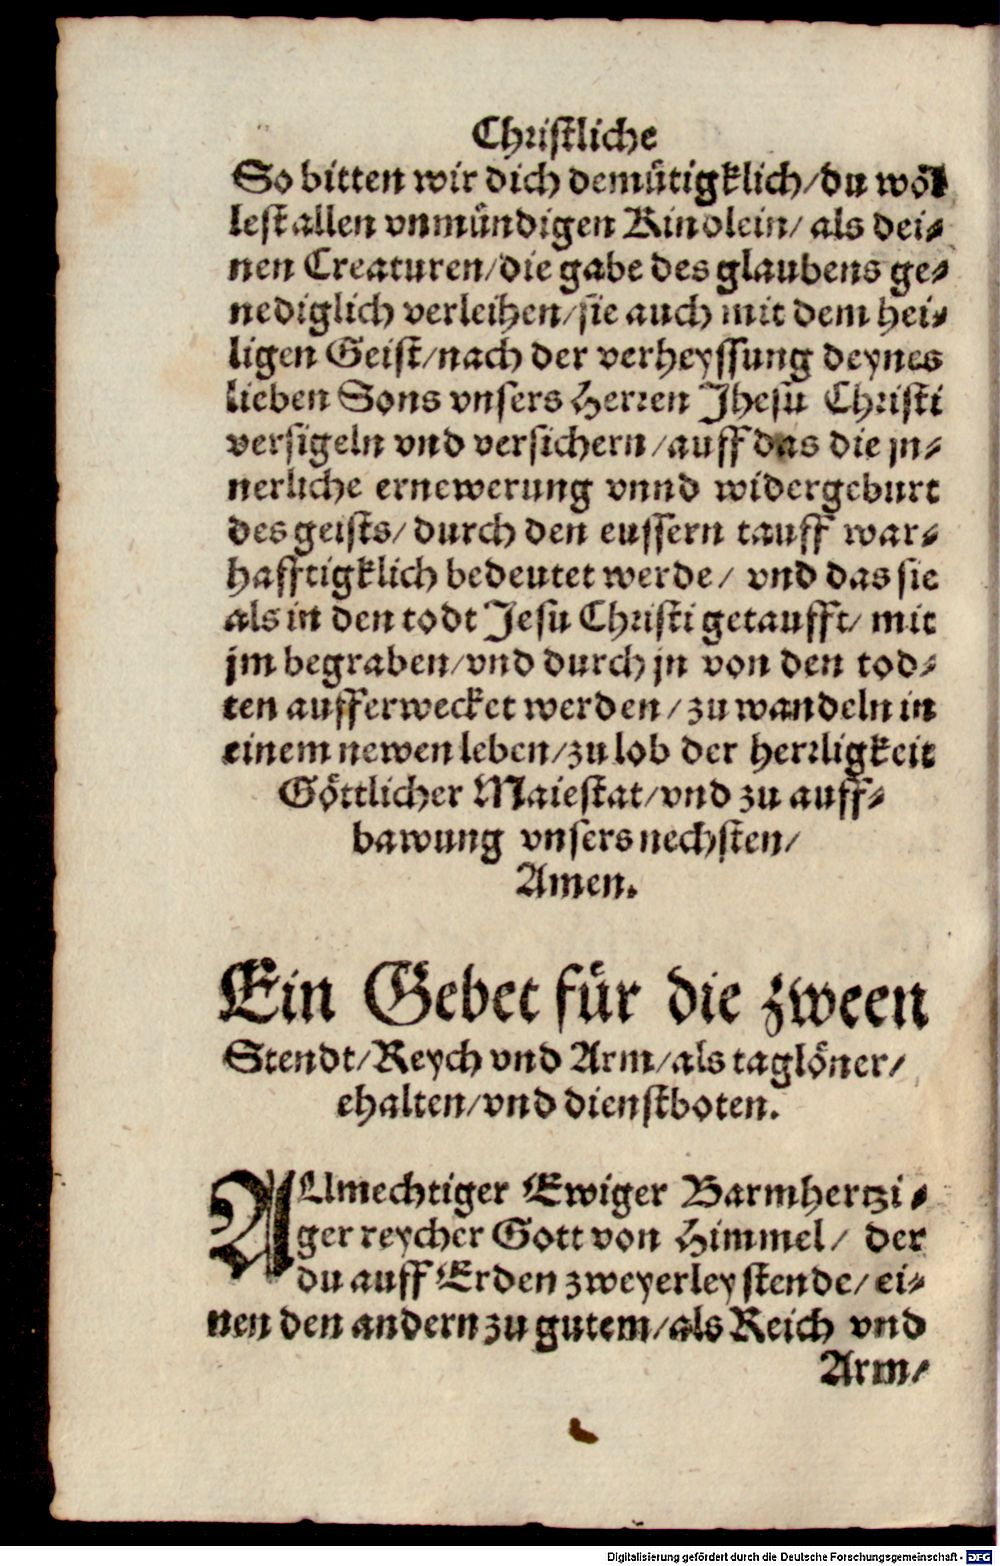 Christliche
So bitten wir dich demütigklich/du wöl
lest allen vnmündigen Kindlein/ als dei-
nen Creaturen/die gabe des glaubens ge-
nediglich verleihen/sie auch mit dem hei-
ligen Geist/nach der verheyssung deynes
lieben Sons vnsers Herren Jhesu Christi
versigeln vnd versichern/auff das die jn-
nerliche ernewerung vnnd widergeburt
des geists/durch den eussern tauff war-
hafftigklich bedeutet werde/ vnd das sie
als in den todt Jesu Christi getaufft/ mit
jm begraben/vnd durch jn von den tod-
ten aufferwecket werden/zu wandeln in
einem newen leben/zu lob der herrligkeit
Göttlicher Maiestat/vnd zu auff-
bawung vnsers nechsten/
Amen.
Ein Gebet für die zween
Stendt/Reych vnd Arm/als taglöner/
ehalten/vnd dienstboten.
Allmechtiger Ewiger Barmhertzi-
ger reycher Gott von Himmel/ der
du auff Erden zweyerley stende/ei-
nen den andern zu gutem/als Reich vnd
Arm/
Digitalisierung gefördert durch die Deutsche Forschungsgemeinschaft - DFG